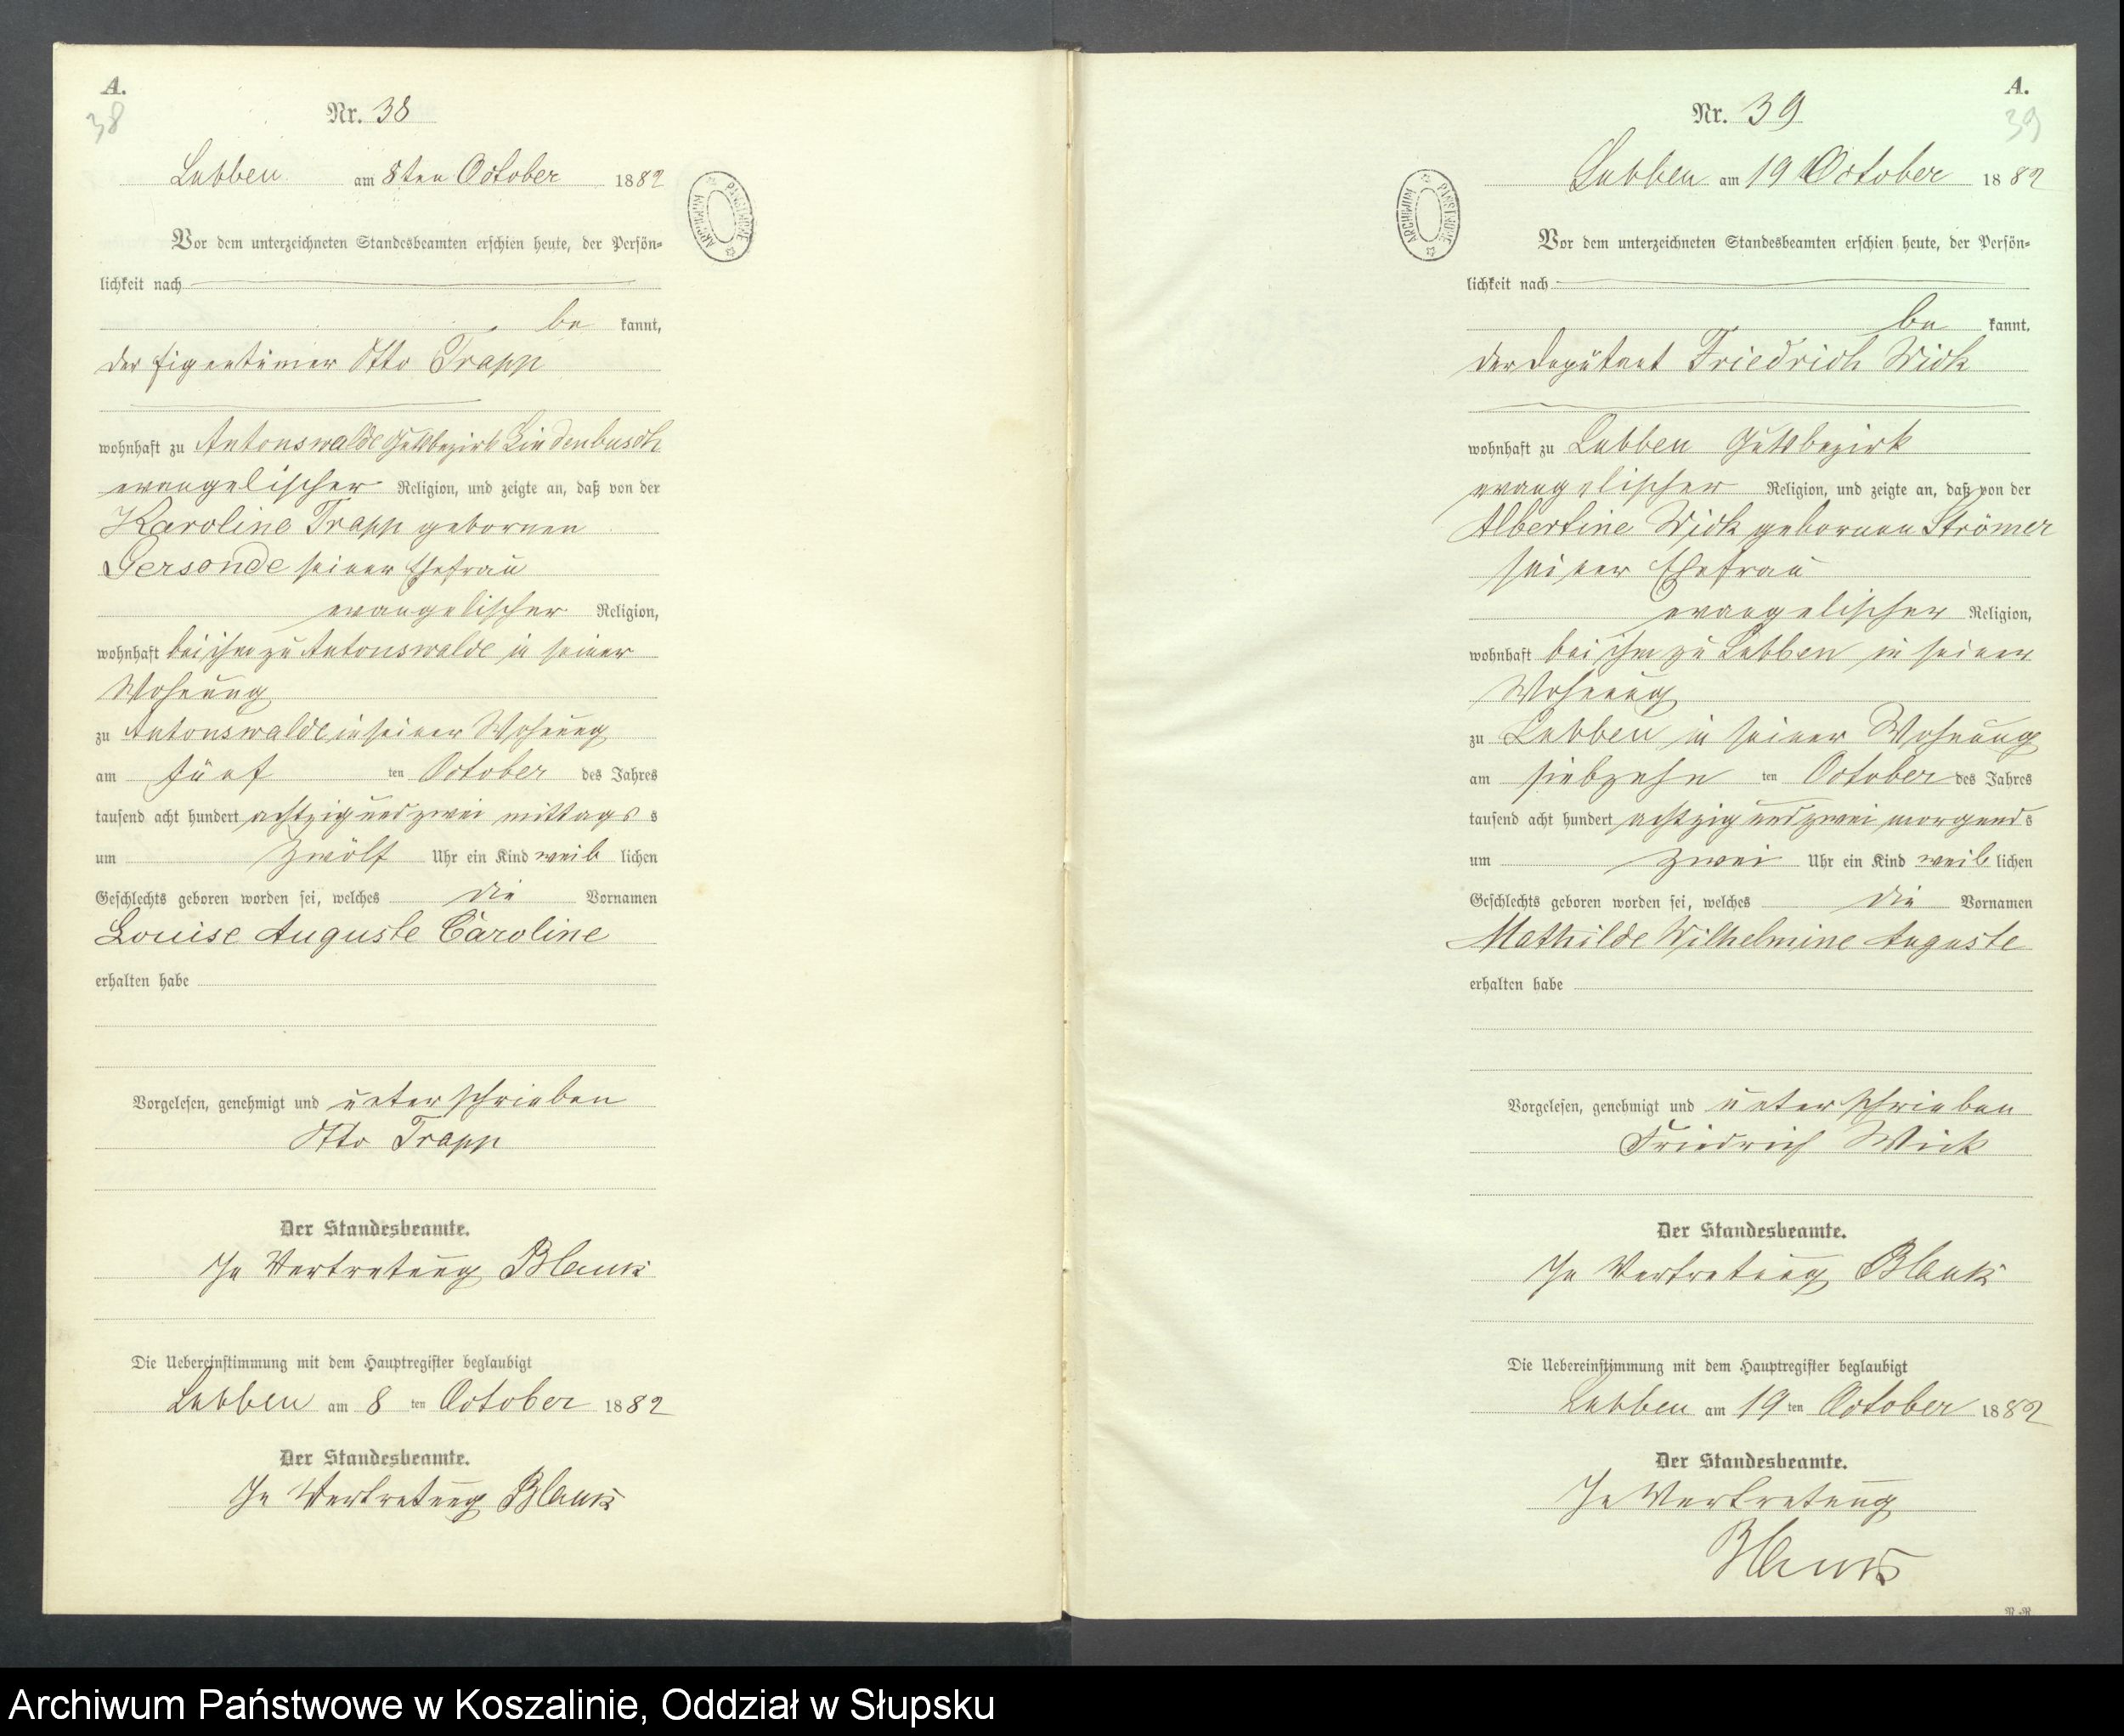 A.
38
Nr. 38
Lubben am 8ten October 1882
ARCHIWUM PAŃSTWOWE
Vor dem unterzeichneten Standesbeamten erschien heute, der Persön=
lichkeit nach
be kannt,
der Eigentümer Otto Trapp
wohnhaft zu Antonswalde Gutsbezirk Lindenbusch
evangelischer Religion, und zeigte an, daß von der
Karoline Trapp gebornen
Gersonde seiner Ehefrau
evangelischer Religion,
wohnhaft bei ihm zu Antonswalde in seiner
Wohnung
zu Antonswalde in seiner Wohnung
am fünf ten October des Jahres
tausend acht hundert achtzig und zwei mittags s
um zwölf Uhr ein Kind weib lichen
Geschlechts geboren worden sei, welches die Vornamen
Louise Auguste Caroline
erhalten habe
Vorgelesen, genehmigt und unterschrieben
Otto Trapp
Der Standesbeamte.
In Vertretung Blank
Die Uebereinstimmung mit dem Hauptregister beglaubigt
Lubben am 8 ten October 1882
Der Standesbeamte.
In Vertretung Blank
A.
39
Nr. 39
Lubben am 19 October 1882
ARCHIWUM PAŃSTWOWE
Vor dem unterzeichneten Standesbeamten erschien heute, der Persön=
lichkeit nach
be kannt,
der Deputant Friedrich Wick
wohnhaft zu Lubben Gutsbezirk
evangelischer Religion, und zeigte an, daß von der
Albertine Wick gebornen Strömer
seiner Ehefrau
evangelischer Religion,
wohnhaft bei ihm zu Lubben in seiner
Wohnung
zu Lubben in seiner Wohnung
am siebzehn ten October des Jahres
tausend acht hundert achtzig und zwei morgend s
um zwei Uhr ein Kind weib lichen
Geschlechts geboren worden sei, welches die Vornamen
Mathilde Wilhelmine Auguste
erhalten habe
Vorgelesen, genehmigt und unterschrieben
Friedrich Wick
Der Standesbeamte.
In Vertretung Blank
Die Uebereinstimmung mit dem Hauptregister beglaubigt
Lubben am 19 ten October 1882
Der Standesbeamte.
In Vertretung
Blank
Archiwum Państwowe w Koszalinie, Oddział w Słupsku